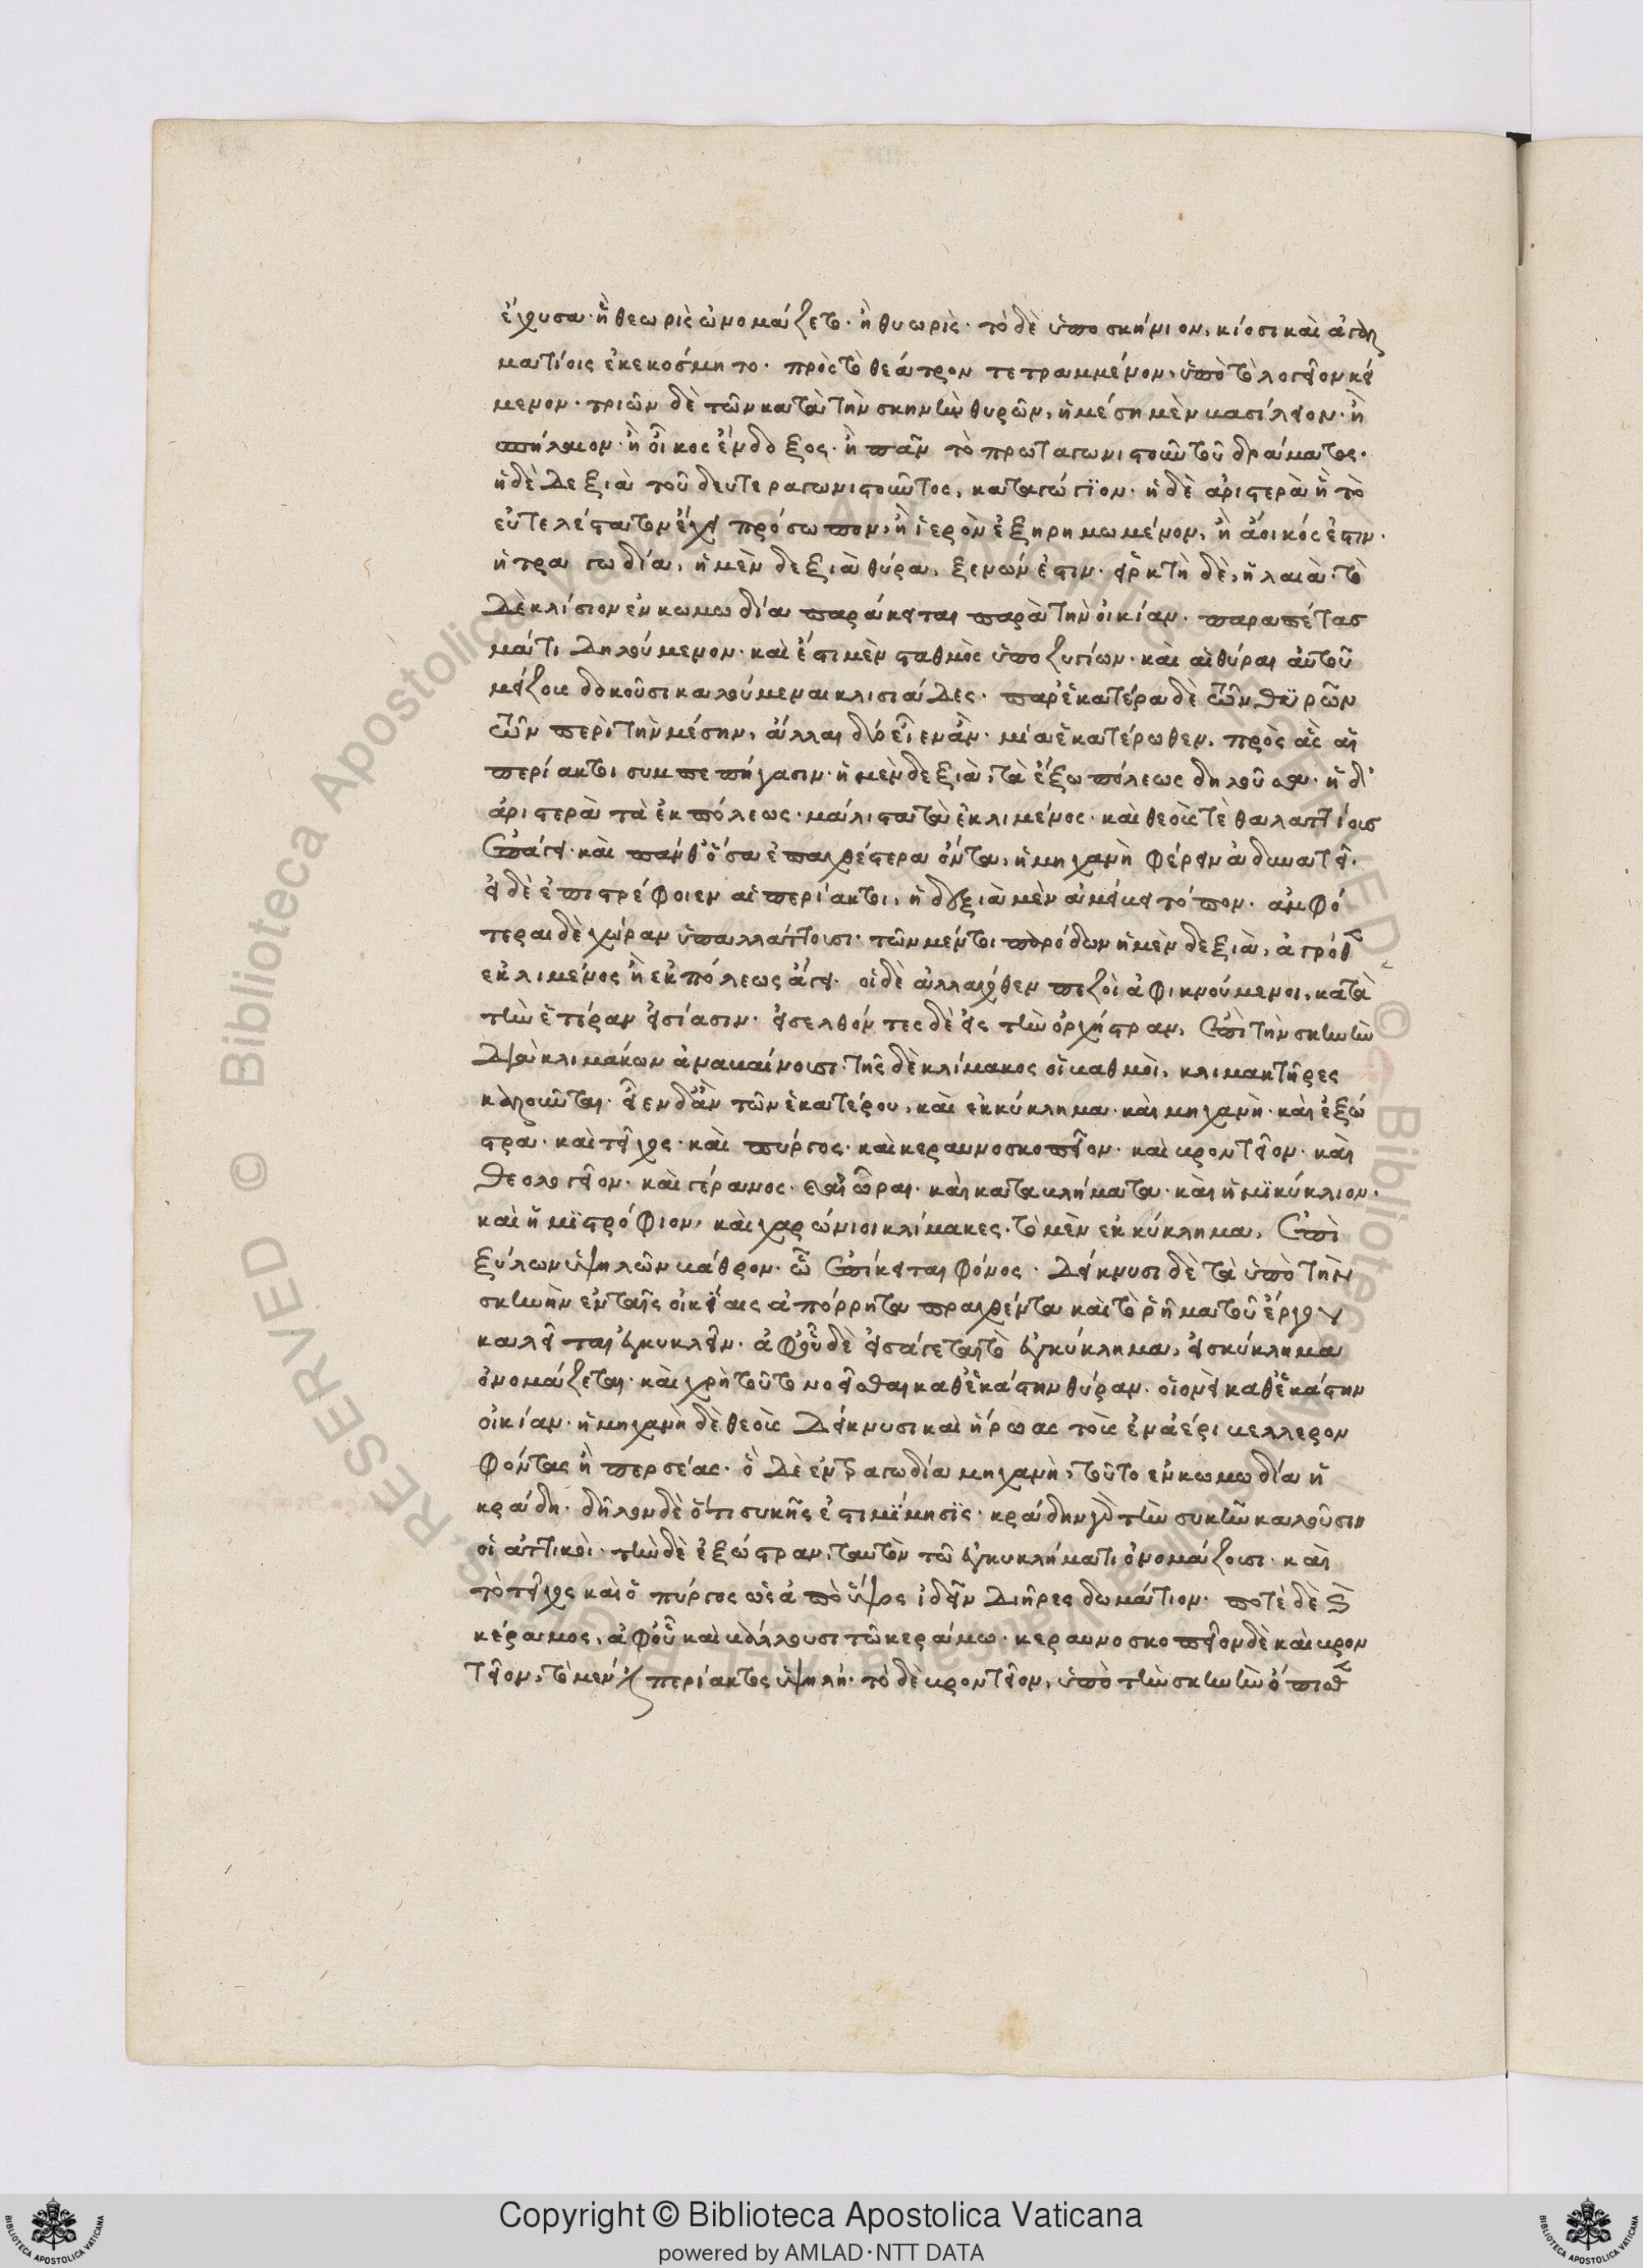 ἔχουσα· ἢ θεωρὶς ὠνομάζετο· ἢ θυωρὶς· τὸ δὲ ὑποσκήνιον, κίοσι καὶ ἀγαλ
ματίοις ἐκεκόσμητο· πρὸς τὸ θέατρον τετραμμένον, ὑπὸ τὸ λογεῖον κεί
μενον· τριῶν δὲ τῶν κατὰ τὴν σκηνὴν θυρῶν, ἡ μέση μὲν βασίλειον· ἢ
σπήλαιον· ἢ οἶκος ἔνδοξος· ἢ πᾶν τὸ πρωταγωνιστοῦν τοῦ δράματος·
ἡ δὲ δεξιὰ τοῦ δευτεραγωνιστοῦντος, καταγώγϊον· ἡ δὲ ἀριστερὰ ἢ τὸ
εὐτελέστατον ἔχει πρόσωπον, ἢ ἱερὸν ἐξηρημωμένον, ἢ ἄοικός ἐστιν·
ἡ τραγωδία, ἡ μὲν δεξιὰ θύρα, ξενών ἐστιν· εἱρκτὴ δὲ, ἡ λαιὰ· τὸ
δὲ κλίσιον ἐν κωμωδία παράκειται παρὰ τὴν οἰκίαν· παραπέτασ
ματι δηλούμενον· καὶ ἔστι μὲν σταθμὸς ὑποζυγίων· καὶ αἱ θύραι αὐτοῦ
μείζους δοκοῦσι καλούμεναι κλισιάδες· παρ' ἑκατέρα δὲ τῶν θϋρῶν
τῶν περὶ τὴν μέσην, ἄλλαι δύο εἶεν ἂν· μία ἑκατέρωθεν, πρὸς ἃς αἱ
περίακτοι συμπεπήγασιν· ἡ μὲν δεξιὰ, τὰ ἔξω πόλεως δηλοῦσα· ἡ δ'
ἀριστερὰ τὰ ἐκ πόλεως· μάλιστα τὰ ἐκ λιμένος· καὶ θεούς τὲ θαλαττίους
ἐπάγει· καὶ πάνθ' ὅσα ἐπαχθέστερα ὄντα, ἡ μηχανὴ φέρειν ἀδυνατεῖ·
εἰ δὲ ἐπιστρέφοιεν αἱ περίακτοι, ἡ δεξιὰ μὲν ἀμείβει τόπον· ἀμφό
τεραι δὲ χώραν ὑπαλλάττουσι· τῶν μέντοι παρόδων ἡ μὲν δεξιὰ, ἀγρόθεν
ἐκ λιμένος ἢ ἐκ πόλεως ἄγει· οἱ δὲ ἀλλαχόθεν πεζοὶ ἀφικνούμενοι, κατὰ
τὴν ἑτέραν εἰσίασιν· εἰσελθόντες δὲ εἰς τὴν ὀρχήστραν, ἐπὶ τὴν σκηνὴν
διὰ κλιμάκων ἀναβαίνουσι· τῆς δὲ κλίμακος οἱ βαθμοὶ, κλιμακτῆρες
καλοῦνται· εἶεν δ' ἂν τῶν ἑκατέρου, καὶ ἐκκύκλημα· καὶ μηχανὴ· καὶ ἐξώ
στρα· καὶ τεῖχος· καὶ πύργος· καὶ κεραυνοσκοπεῖον· καὶ βροντεῖον· καὶ
θεολογεῖον· καὶ γέρανος· καὶ αἰῶραι· καὶ καταβλήματα· καὶ ἡμϊκύκλιον·
καὶ ἡμϊστρόφιον, καὶ χαρώνιοι κλίμακες· τὸ μὲν ἐκκύκλημα, ἐπὶ
ξύλων ὑψηλῶν βάθρον· ὧ ἐπίκειται θρόνος· δείκνυσι δὲ τὰ ὑπὸ τὴν
σκηνὴν ἐν ταῖς οἰκίαις ἀπόρρητα πραχθέντα καὶ τὸ ῥῆμα τοῦ ἔργου
καλεῖται ἐγκυκλεῖν· ἀφ' οὗ δὲ εἰσάγεται τὸ ἐγκύκλημα, εἰσκύκλημα
ὀνομάζεται· καὶ χρὴ τοῦτο νοεῖσθαι καθ' ἑκάστην θύραν· οἱονεὶ καθ' ἑκάστην
οἰκίαν· ἡ μηχανὴ δὲ θεοὺς δείκνυσι καὶ ἥρωας τοὺς ἐν ἀέρι βελλερον
φόντας ἢ περσέας· ὃ δὲ ἐν τραγωδία μηχανὴ, τοῦτο ἐν κωμωδία ἡ
κράδη· δῆλον δὲ ὅτι συκῆς ἐστι μίμησϊς· κράδην γὰρ τὴν συκῆν καλοῦσιν
οἱ ἀττικοὶ· τὴν δὲ ἐξώστραν, ταυτὸν τῶ ἐγκυκλήματι ὀνομάζουσι· καὶ
τὸ τεῖχος καὶ ὁ πύργος ὡς ἀπὸ ὕψους ἰδεῖν διῆρες δωμάτιον· ποτὲ δὲ
κέραμος, ἀφ' οὗ καὶ βάλλουσι τῶ κεράμω· κεραυνοσκοπεῖον δὲ καὶ βρον
τεῖον, τὸ μέν ἐστι περίακτος ὑψηλή· τὸ δὲ βροντεῖον, ὑπὸ τὴν σκηνὴν ὄπισθεν
Copyright © Biblioteca Apostolica Vaticana
powered by AMLAD·NTT DATA